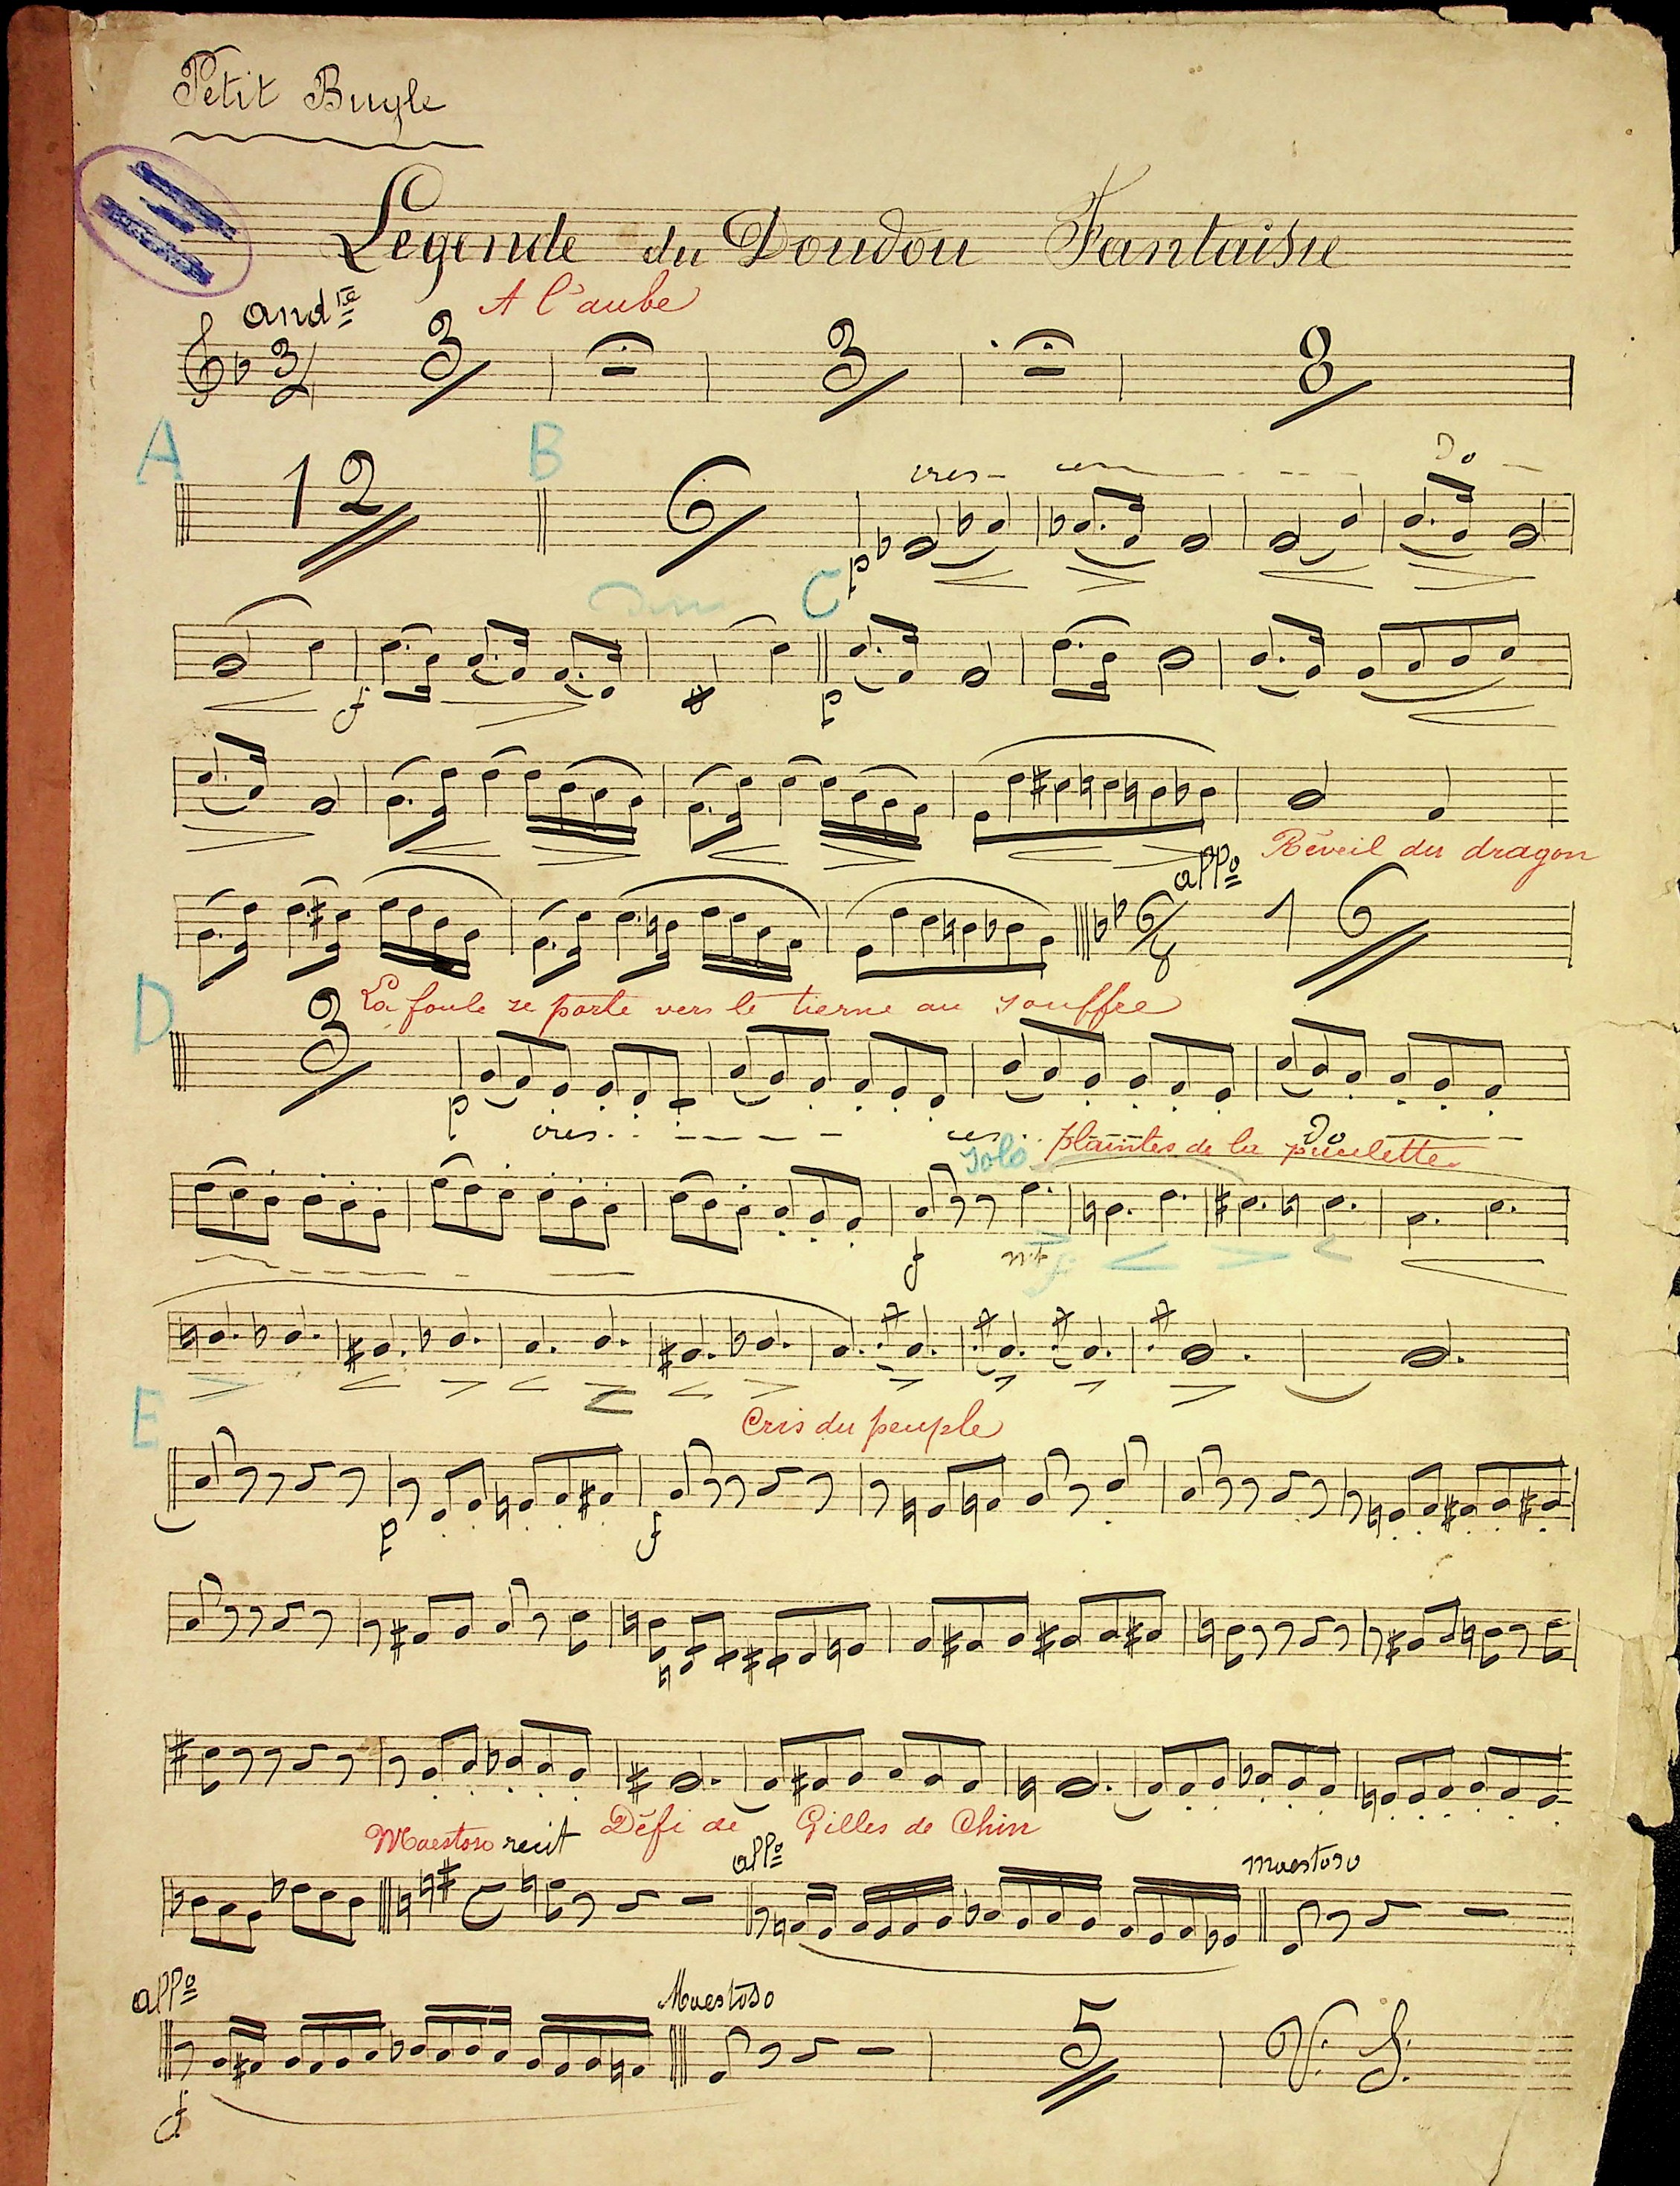 Petit Bugle
Légende du Doudou Fantaisie
And.te A l'aube
3 3 3 8
A 12 B 6 cres - cen - - - Do -
p
Dim C
f p
Réveil du dragon
all.o 6/8 16
D 3 La foule se porte vers le tierne au souffre
p cres - - - - cen - - Do - -
Solo plaintes de la pucelette
f mf f
E Cris du peuple
p f
Maestoso recit Défi de Gilles de Chin
all.o maestoso
C
all.o Maestoso
5 V. S.
f